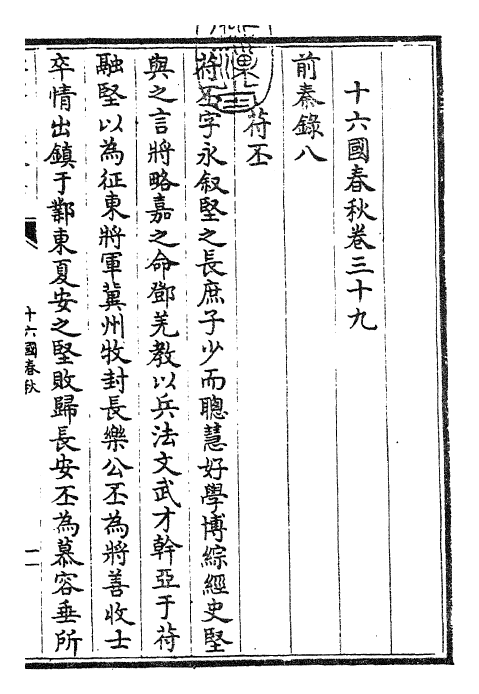 十六國春秋卷三十九
前秦錄八
苻丕
苻丕字永叙堅之長庶子少而聰慧好學博綜經史堅
與之言將略嘉之命鄧羌教以兵法文武才幹亞于苻
融堅以為征東將軍冀州牧封長樂公丕為將善收士
卒情出鎮于鄴東夏安之堅敗歸長安丕為慕容垂所
十六國春秋
一